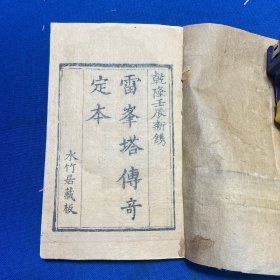 乾隆壬辰新鐫
雷峯塔傳奇
定本
水竹居藏板